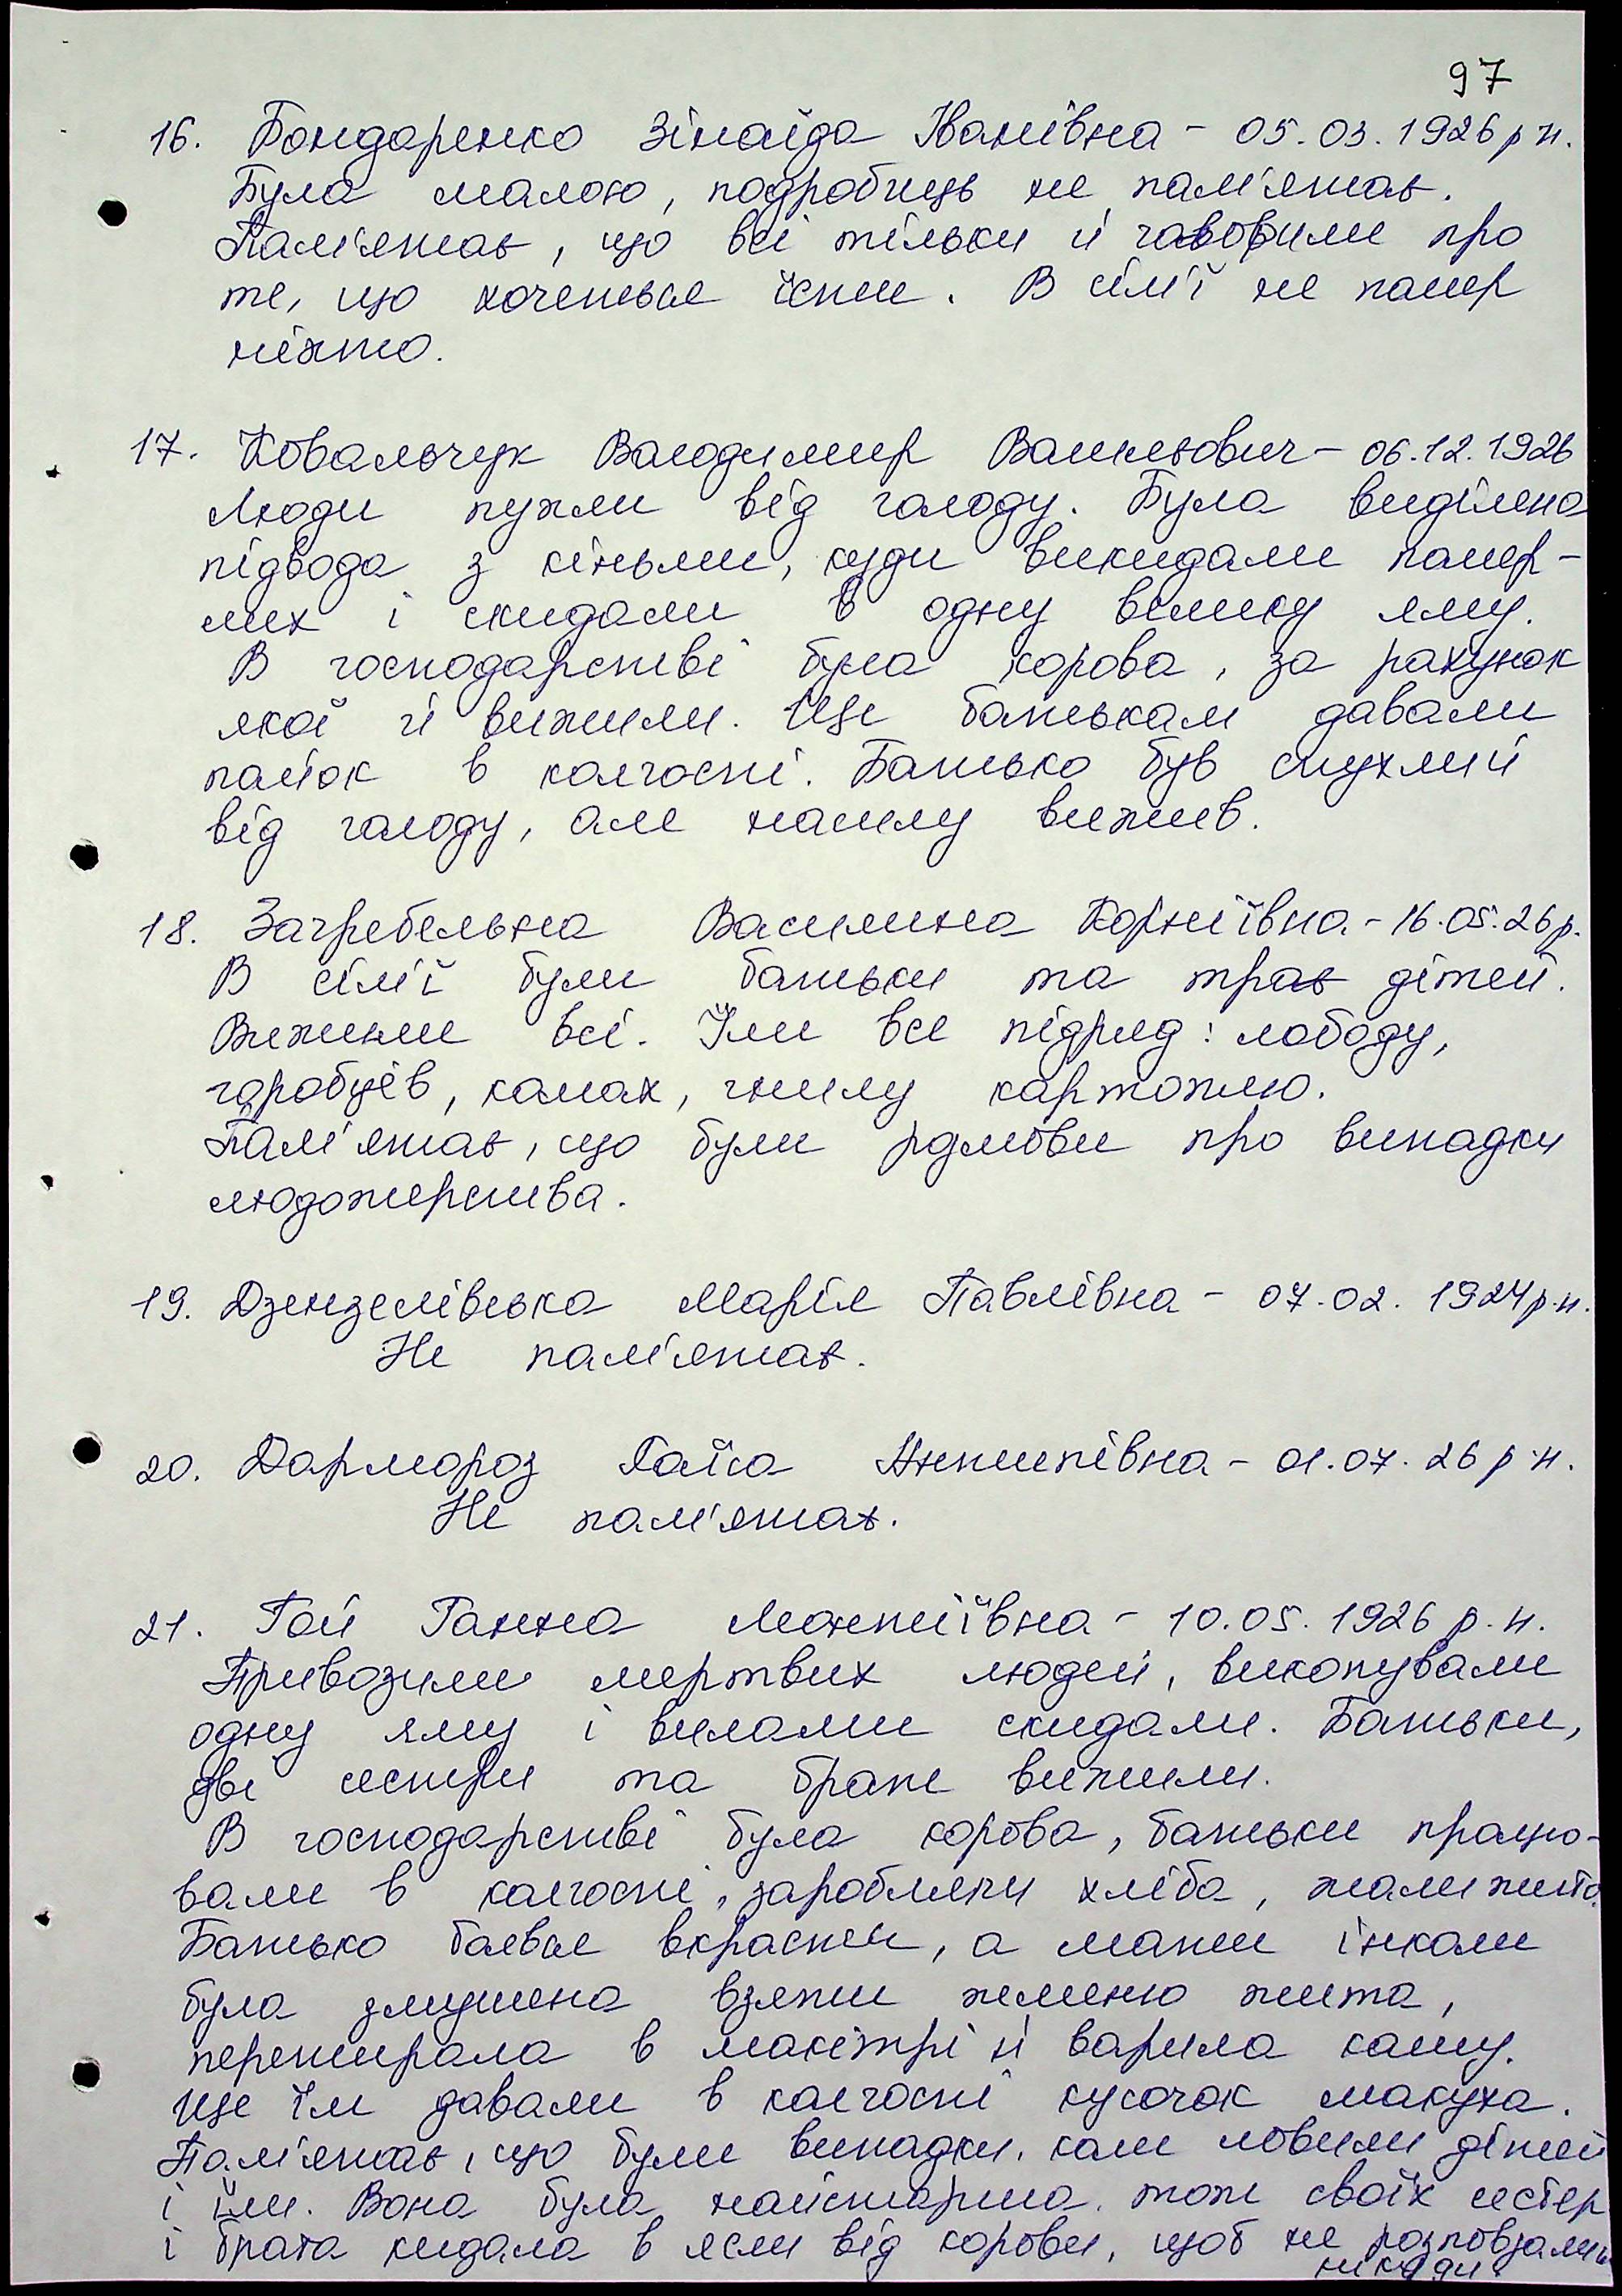 97
16. Бондаренко Зінаїда Іванівна - 05.03.1926 р н.
Була малою, подробиць не пам'ятає.
Пам'ятає, що всі тільки й говорили про
те, що хочеться їсти. В сім'ї не помер
ніхто.
17. Ковальчук Володимир Васильович - 06.12.1926
Люди пухли від голоду. Була виділена
підвода з кіньми, куди викидали помер-
лих і скидали в одну велику яму.
В господарстві була корова, за рахунок
якої й вижили. Ще батькам давали
пайок в колгоспі. Батько був опухлий
від голоду, але нашлу вижив.
18. Загребельна Василина Корніївна - 16.05.26 р.
В сім'ї були батьки та троє дітей.
Вижили всі. Їли все підряд: лободу,
горобців, комах, гнилу картоплю.
Пам'ятає, що були розмови про випадки
людожерства.
19. Дзензелівська Марія Павлівна - 07.02.1924 р.н.
Не пам'ятає.
20. Дармороз Раїса Антипівна - 01.07.26 р.н.
Не пам'ятає.
21. Гой Ганна Мантиївна - 10.05.1926 р.н.
Привозили мертвих людей, викопували
одну яму і вилами скидали. Батьки,
дві сестри та брат вижили.
В господарстві була корова, батьки працю-
вали в колгоспі, заробляли хліба, жали жито.
Батько боявся вкрасти, а мати інколи
була змушена взяти жменю жита,
перетирала в макітрі й варила кашу.
Ще їм давали в колгоспі кусочок макуха.
Пам'ятає, що були випадки, коли ловили дітей
і їли. Вона була найстарша, тож своїх сестер
і брата кидала в ясли від корови, щоб не розповзались
нікуди.